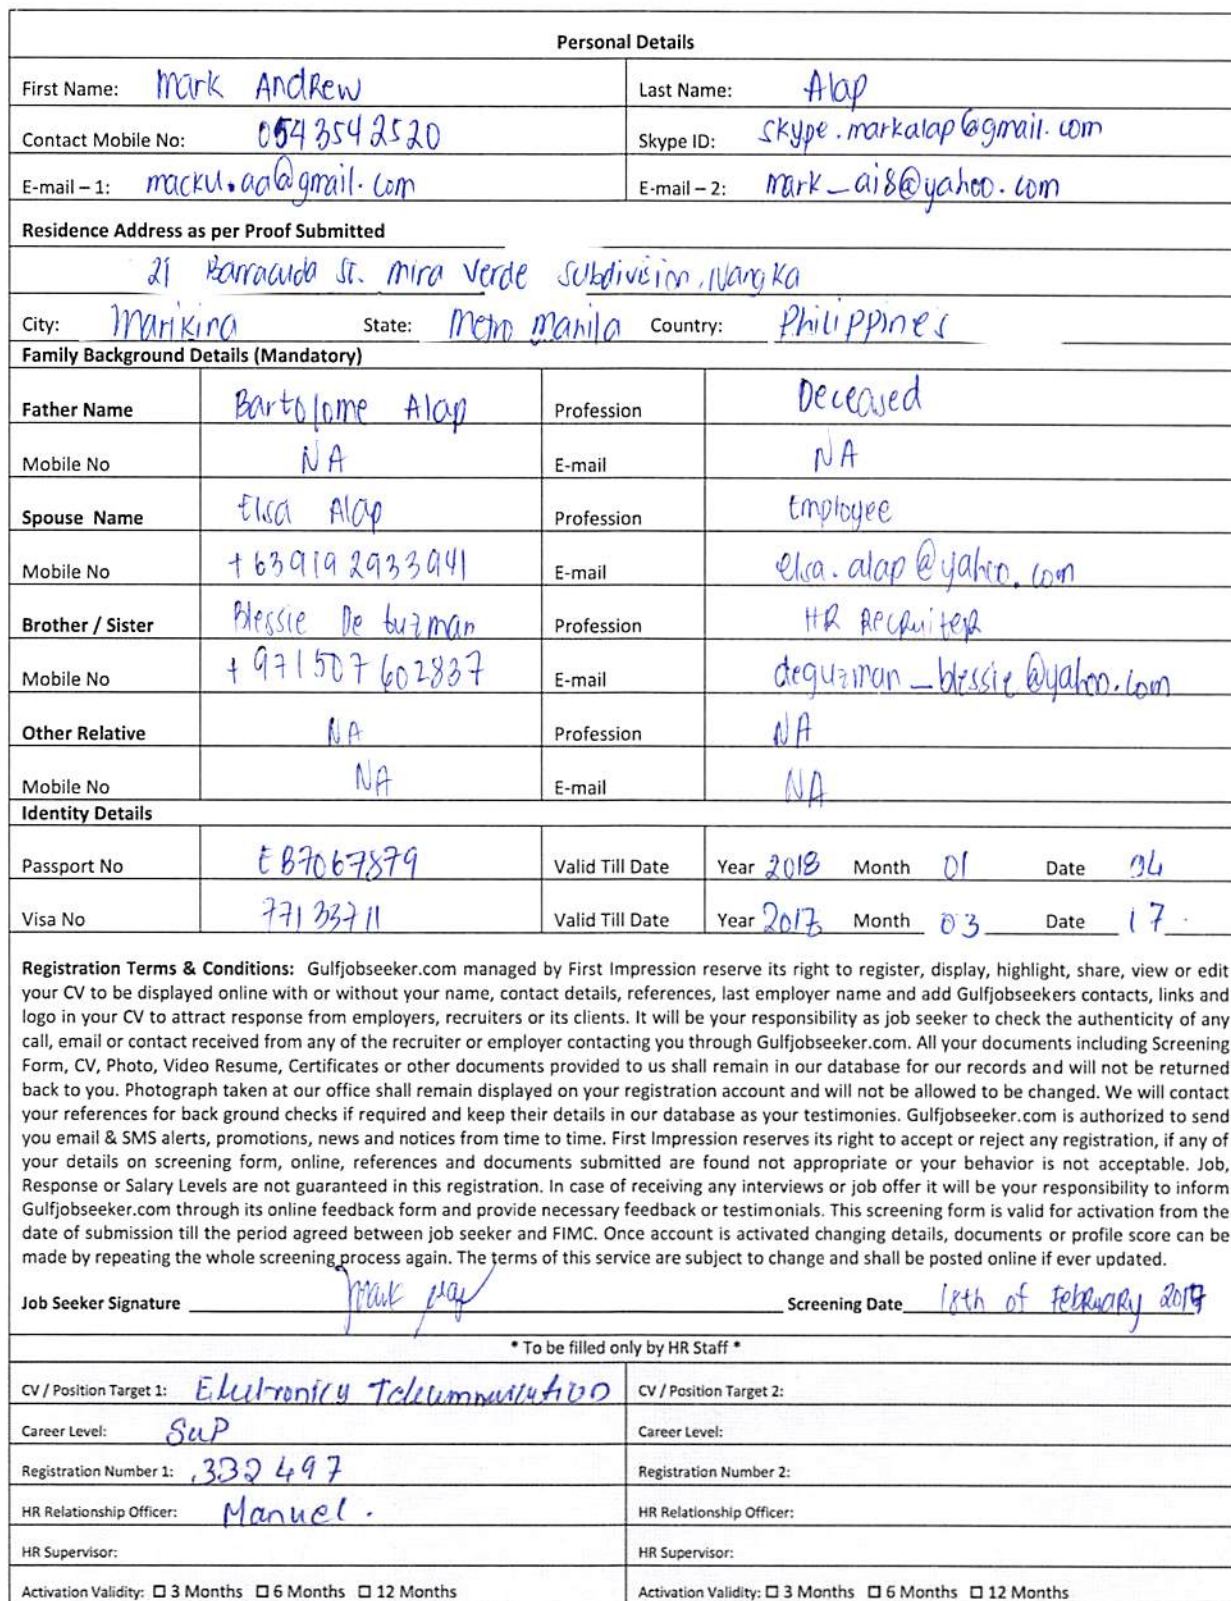 Personal Details
First Name: Mark Andrew Last Name: Alap
Contact Mobile No: 0543542520 Skype ID: skype.markalap@gmail.com
E-mail – 1: macku.aa@gmail.com E-mail – 2: mark_ai8@yahoo.com
Residence Address as per Proof Submitted
21 Barracuda St. Mira Verde Subdivision, Nangka
City: Marikina State: Metro Manila Country: Philippines
Family Background Details (Mandatory)
Father Name Bartolome Alap Profession Deceased
Mobile No NA E-mail NA
Spouse Name Elsa Alap Profession Employee
Mobile No +639192933941 E-mail elsa.alap@yahoo.com
Brother / Sister Blessie De Guzman Profession HR Recruiter
Mobile No +971507602837 E-mail deguzman_blessie@yahoo.com
Other Relative NA Profession NA
Mobile No NA E-mail NA
Identity Details
Passport No EB7067879 Valid Till Date Year 2018 Month 01 Date 04
Visa No 77133711 Valid Till Date Year 2017 Month 03 Date 17.
Registration Terms & Conditions: Gulfjobseeker.com managed by First Impression reserve its right to register, display, highlight, share, view or edit
your CV to be displayed online with or without your name, contact details, references, last employer name and add Gulfjobseekers contacts, links and
logo in your CV to attract response from employers, recruiters or its clients. It will be your responsibility as job seeker to check the authenticity of any
call, email or contact received from any of the recruiter or employer contacting you through Gulfjobseeker.com. All your documents including Screening
Form, CV, Photo, Video Resume, Certificates or other documents provided to us shall remain in our database for our records and will not be returned
back to you. Photograph taken at our office shall remain displayed on your registration account and will not be allowed to be changed. We will contact
your references for back ground checks if required and keep their details in our database as your testimonies. Gulfjobseeker.com is authorized to send
you email & SMS alerts, promotions, news and notices from time to time. First Impression reserves its right to accept or reject any registration, if any of
your details on screening form, online, references and documents submitted are found not appropriate or your behavior is not acceptable. Job,
Response or Salary Levels are not guaranteed in this registration. In case of receiving any interviews or job offer it will be your responsibility to inform
Gulfjobseeker.com through its online feedback form and provide necessary feedback or testimonials. This screening form is valid for activation from the
date of submission till the period agreed between job seeker and FIMC. Once account is activated changing details, documents or profile score can be
made by repeating the whole screening process again. The terms of this service are subject to change and shall be posted online if ever updated.
Job Seeker Signature Screening Date 18th of February 2017
* To be filled only by HR Staff *
CV / Position Target 1: Electronics Telecommunication CV / Position Target 2:
Career Level: SuP Career Level:
Registration Number 1: 332497 Registration Number 2:
HR Relationship Officer: Manuel. HR Relationship Officer:
HR Supervisor: HR Supervisor:
Activation Validity: ☐ 3 Months ☐ 6 Months ☐ 12 Months Activation Validity: ☐ 3 Months ☐ 6 Months ☐ 12 Months